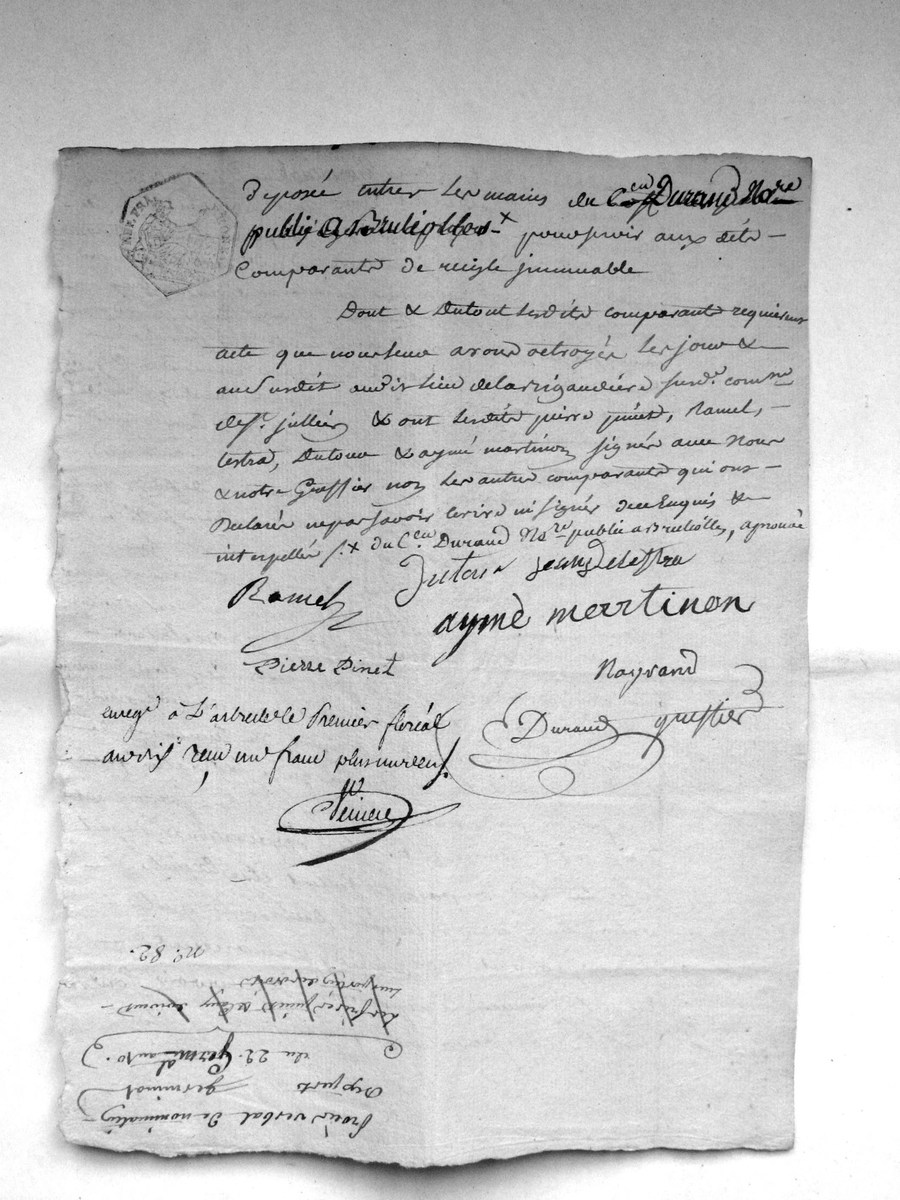 Deposée entres Les mains du C.en Durand No.re
public a Brulliolles x pour servir aux dits
Comparants de reigle immuable
Dont & Du tout Lesdits comparants requierent
acte que nous leurs avons octroyés Les jour &
an Susdit audit lieu de la rigaudiére susd.e com.ne
de S.t jullien & ont Lesdits pierre pinet, Ramel,
lestra, Dutour & aymé martinon signés avec Nous
& notre Greffier non Les autres comparants qui ont
Declarés ne pas savoir écrire ni signés de ce Enquis &
interpellés /. x du C.en Durand No.re public a Brullolles, aprouvé
Ramel Dutour jean delestra
aymé martinon
Pierre Pinet Nayrand
Durand greffier
enreg.é à L'arbresle le Premier floréal
an dix reçu un franc plus
Proces verbal De nomination
Dexperts germinal
du 22. Germ.al an 10.
N.o 82.